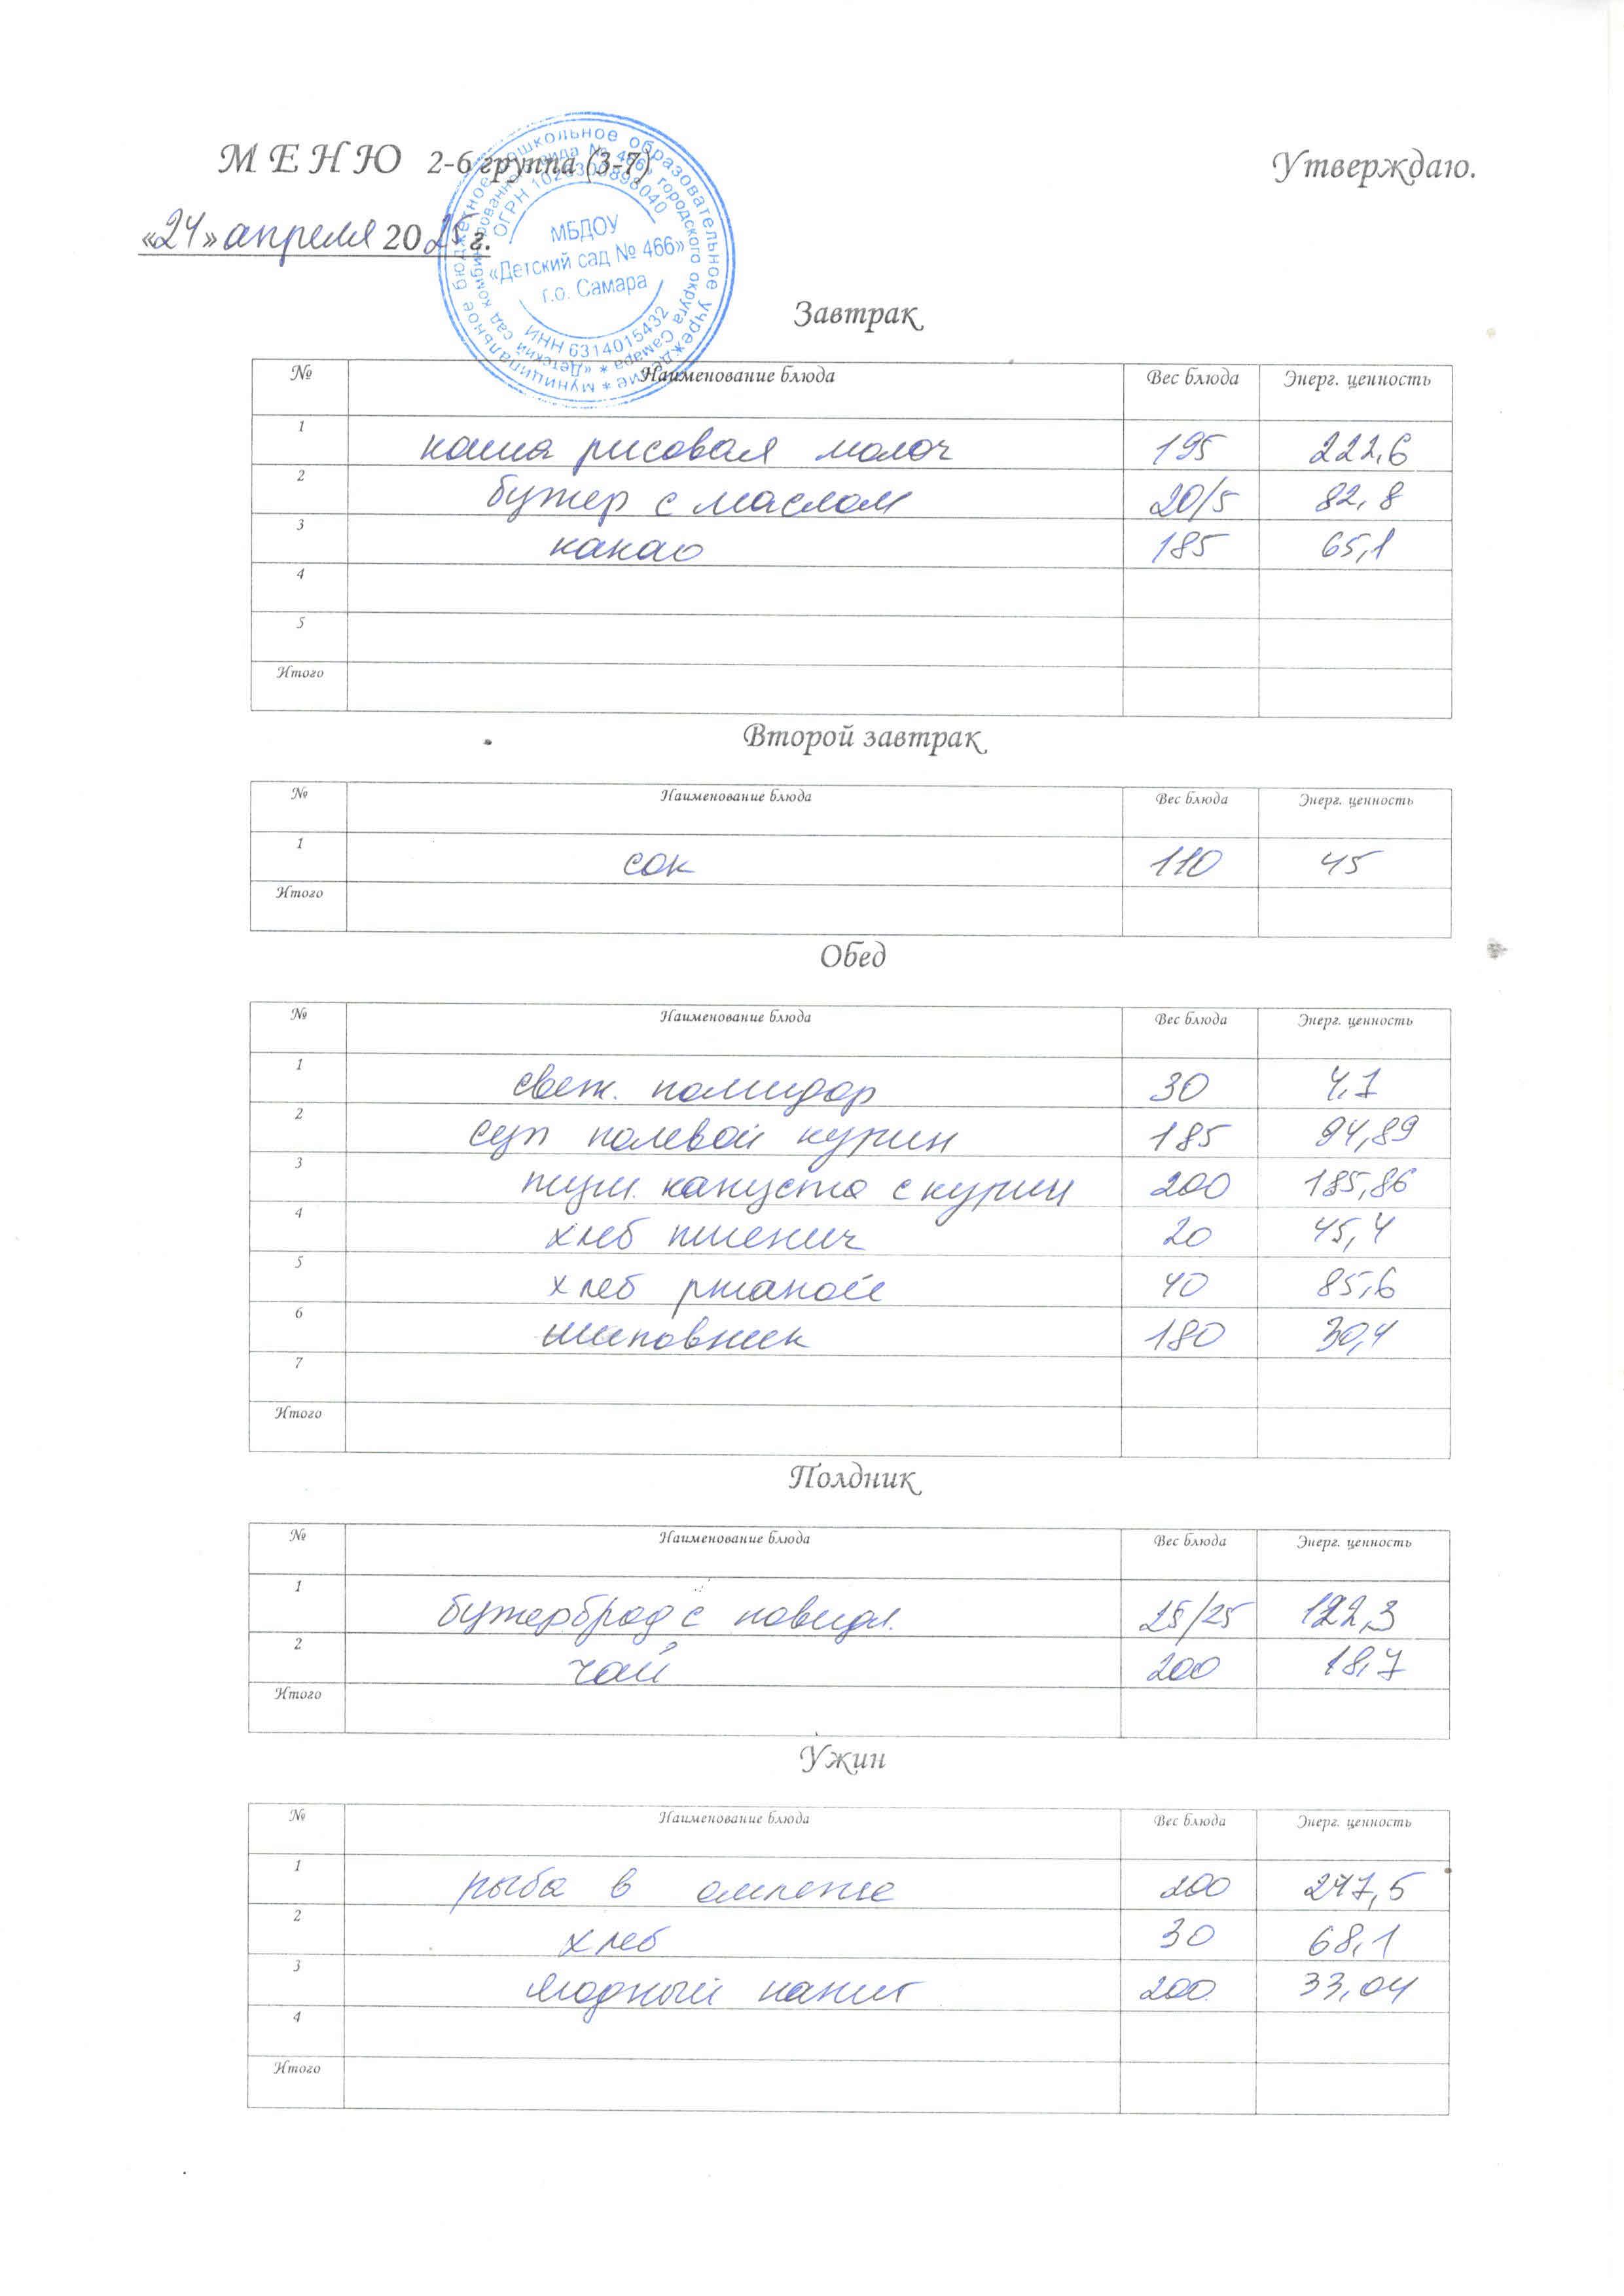 М Е Н Ю 2-6 группа (3-7) Утверждаю.
«24» апреля 2025 г.
муниципальное бюджетное дошкольное образовательное учреждение *
«Детский сад комбинированного вида № 466» городского округа Самара *
ОГРН 1026300898040
МБДОУ
«Детский сад № 466»
г.о. Самара
ИНН 6314015432
Завтрак
№ Наименование блюда Вес блюда Энерг. ценность
1 каша рисовая молоч 195 222,6
2 бутер с маслом 20/5 82,8
3 какао 185 65,1
4
5
Итого
Второй завтрак
№ Наименование блюда Вес блюда Энерг. ценность
1 сок 110 45
Итого
Обед
№ Наименование блюда Вес блюда Энерг. ценность
1 свеж. помидор 30 4,1
2 суп полевой курин 185 94,89
3 туш. капуста с курин 200 185,86
4 хлеб пшенич 20 45,4
5 хлеб ржаной 40 85,6
6 шиповник 180 30,4
7
Итого
Полдник
№ Наименование блюда Вес блюда Энерг. ценность
1 бутерброд с повидл. 25/25 122,3
2 чай 200 18,7
Итого
Ужин
№ Наименование блюда Вес блюда Энерг. ценность
1 рыба в омлете 200 247,5
2 хлеб 30 68,1
3 ягодный напит 200 33,04
4
Итого